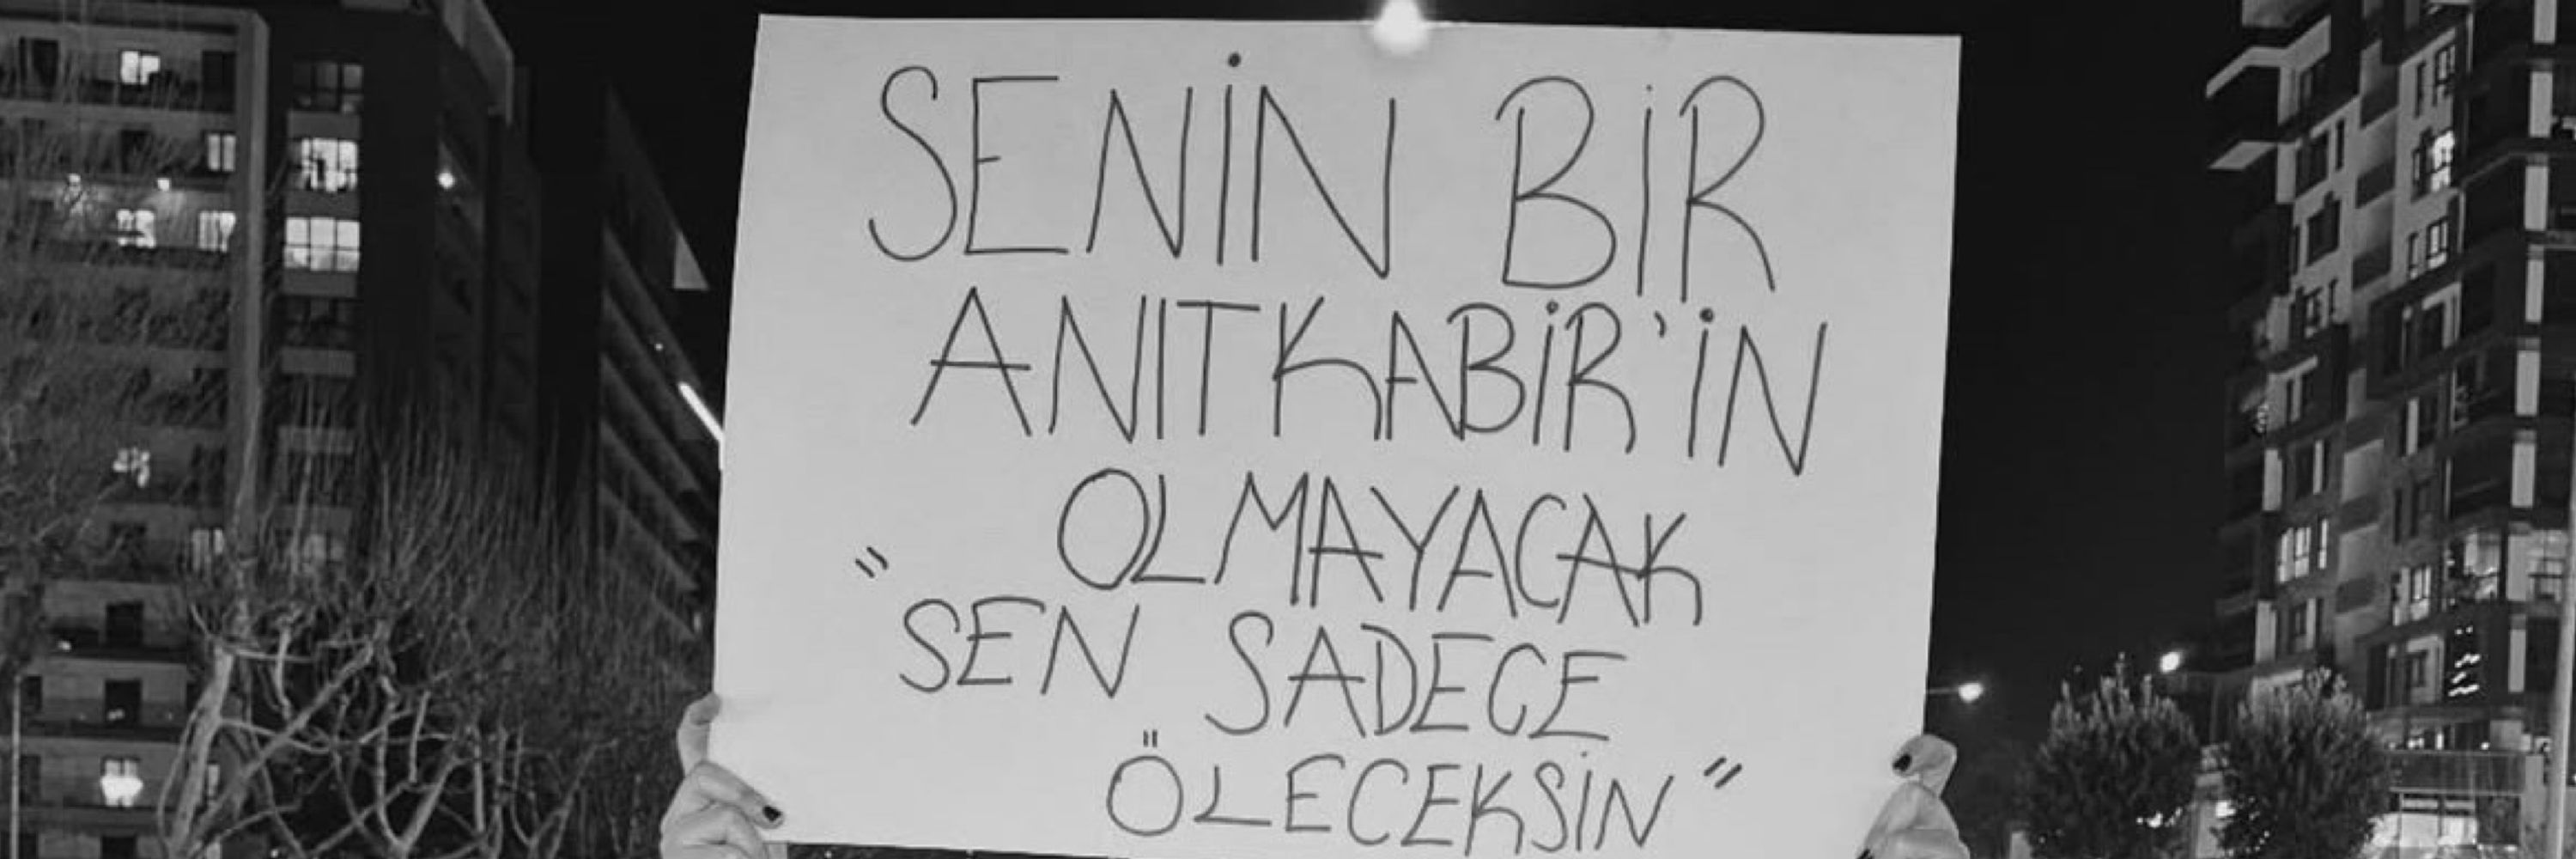 SENİN BİR
ANITKABİR'İN
OLMAYACAK
"SEN SADECE
ÖLECEKSİN"